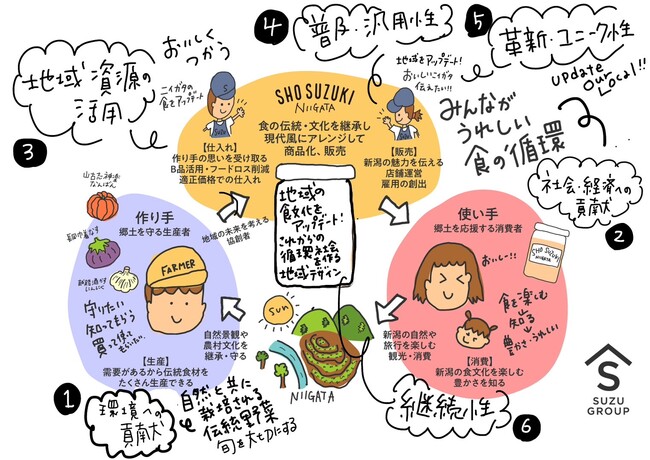 地域資源の
活用
3
おいしく
つかう
ニイガタの
食をアップデート
4
普及・汎用性
地域をアップデート!
おいしいニイガタ
伝えたい!!
5
革新・ユニーク性
update
our
Local!!
みんなが
うれしい
食の循環
SHO SUZUKI
NIIGATA
食の伝統・文化を継承し
現代風にアレンジして
商品化、販売
【仕入れ】
作り手の思いを受け取る
B品活用・フードロス削減
適正価格での仕入れ
【販売】
新潟の魅力を伝える
店舗運営
雇用の創出
社会・経済への
貢献
2
地域の
食文化を
アップデート!
これからの
循環社会を
作る
地域デザイン
地域の未来を考える
協創者
作り手
郷土を守る生産者
かぐらなんばん
長岡巾着なす
にんにく
FARMER
守りたい
知ってもらう
買って使って
もらいたい。
【生産】
需要があるから伝統食材を
たくさん生産できる
自然景観や
農村文化を
継承・守る
使い手
郷土を応援する消費者
おいしー!!
SHO SUZUKI
NIIGATA
食を楽しむ
知る
豊かさ・うれしい
【消費】
新潟の食文化を楽しむ
豊かさを知る
新潟の自然や
旅行を楽しむ
観光・消費
sun
NIIGATA
1
環境への
貢献
自然と共に
栽培される
伝統野菜
旬を大切にする
継続性
6
S
SUZU
GROUP